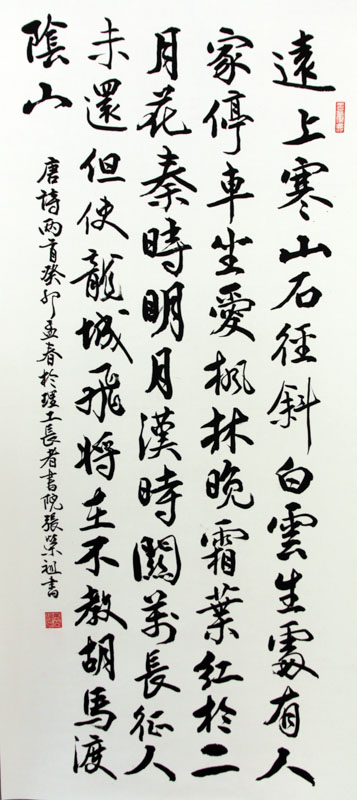 遠上寒山石徑斜白雲生處有人
家停車坐愛楓林晚霜葉紅於二
月花秦時明月漢時關萬里長征人
未還但使龍城飛將在不教胡馬渡
陰山
唐詩兩首癸卯孟春於理工長者書院張榮祖書